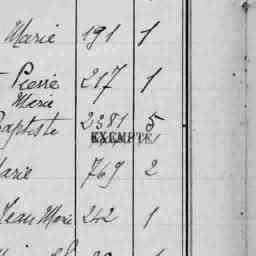 Marie 191 1
Pierre 217 1
Marie
Baptiste 2381 5
EXEMPTE
Marie 769 2
Jean Marie 242 1